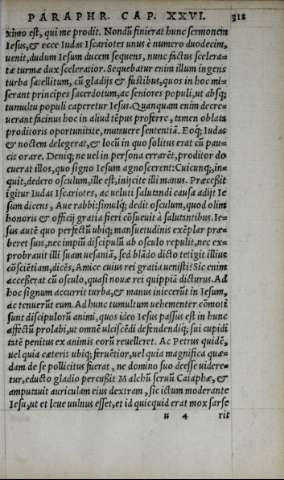 PARAPHR. CAP. XXVI. 312
ximo est, qui me prodit. Nondũ finierat hunc sermonem
Iesus,& ecce Iudas Iscariotes unus è numero duodecim,
uenit,dudum Iesum ducem sequens, nunc factus scelera-
tæ turmæ dux sceleratior. Sequebatur enim illum ingens
turba satellitum, cũ gladijs & fustibus,quos in hoc mi-
serant principes sacerdotum,ac seniores populi,ut absq;
tumultu populi caperetur Iesus. Quanquam enim decre-
uerant facinus hoc in aliud tẽpus proferre, tamen oblata
proditoris oportunitate, mutauere sententiã. Eoq; Iudas
& noctem delegerat,& locũ in quo solitus erat cũ pau-
cis orare. Deniq; ne uel in persona errarẽt,proditor do
cuerat illos,quo signo Iesum agnoscerent:Cuicunq;,in-
quit,dedero osculum,ille est,inijcite illi manus. Præcessit
igitur Iudas Iscariotes, ac ueluti salutandi causa adijt Ie
sum dicens, Aue rabbi:simulq; dedit osculum,quod olim
honoris & officij gratia fieri cõsueuit à salutantibus. Ie-
sus autẽ quo perfectũ ubiq; mansuetudinis exẽplar præ-
beret suis,nec impiũ discipulũ ab osculo repulit,nec ex-
probrauit illi suam uesaniã, sed blãdo dicto tetigit illius
cõsciẽtiam,dicẽs,Amice cuius rei gratia uenisti? Sic enim
accesserat cũ osculo,quasi nouæ rei quippiã dicturus. Ad
hoc signum accurrit turba,& manus iniecerũt in Iesum,
ac tenuerũt eum. Ad hunc tumultum uehementer cõmoti
sunt discipulorũ animi,quos ideo Iesus passus est in hunc
affectũ prolabi,ut omnẽ ulciscẽdi defendendiq; sui cupidi
tatẽ penitus ex animis eorũ reuelleret. Ac Petrus quidẽ,
uel quia cæteris ubiq; feruẽtior,uel quia magnifica quæ-
dam de se pollicitus fuerat, ne domino suo deesse uidere-
tur, educto gladio percussit Malchũ seruũ Caiaphæ,&
amputauit auriculam eius dextram, sic ictum moderante
Iesu,ut et leue uulnus esset,et id quicquid erat mox sarse
u 4 rit